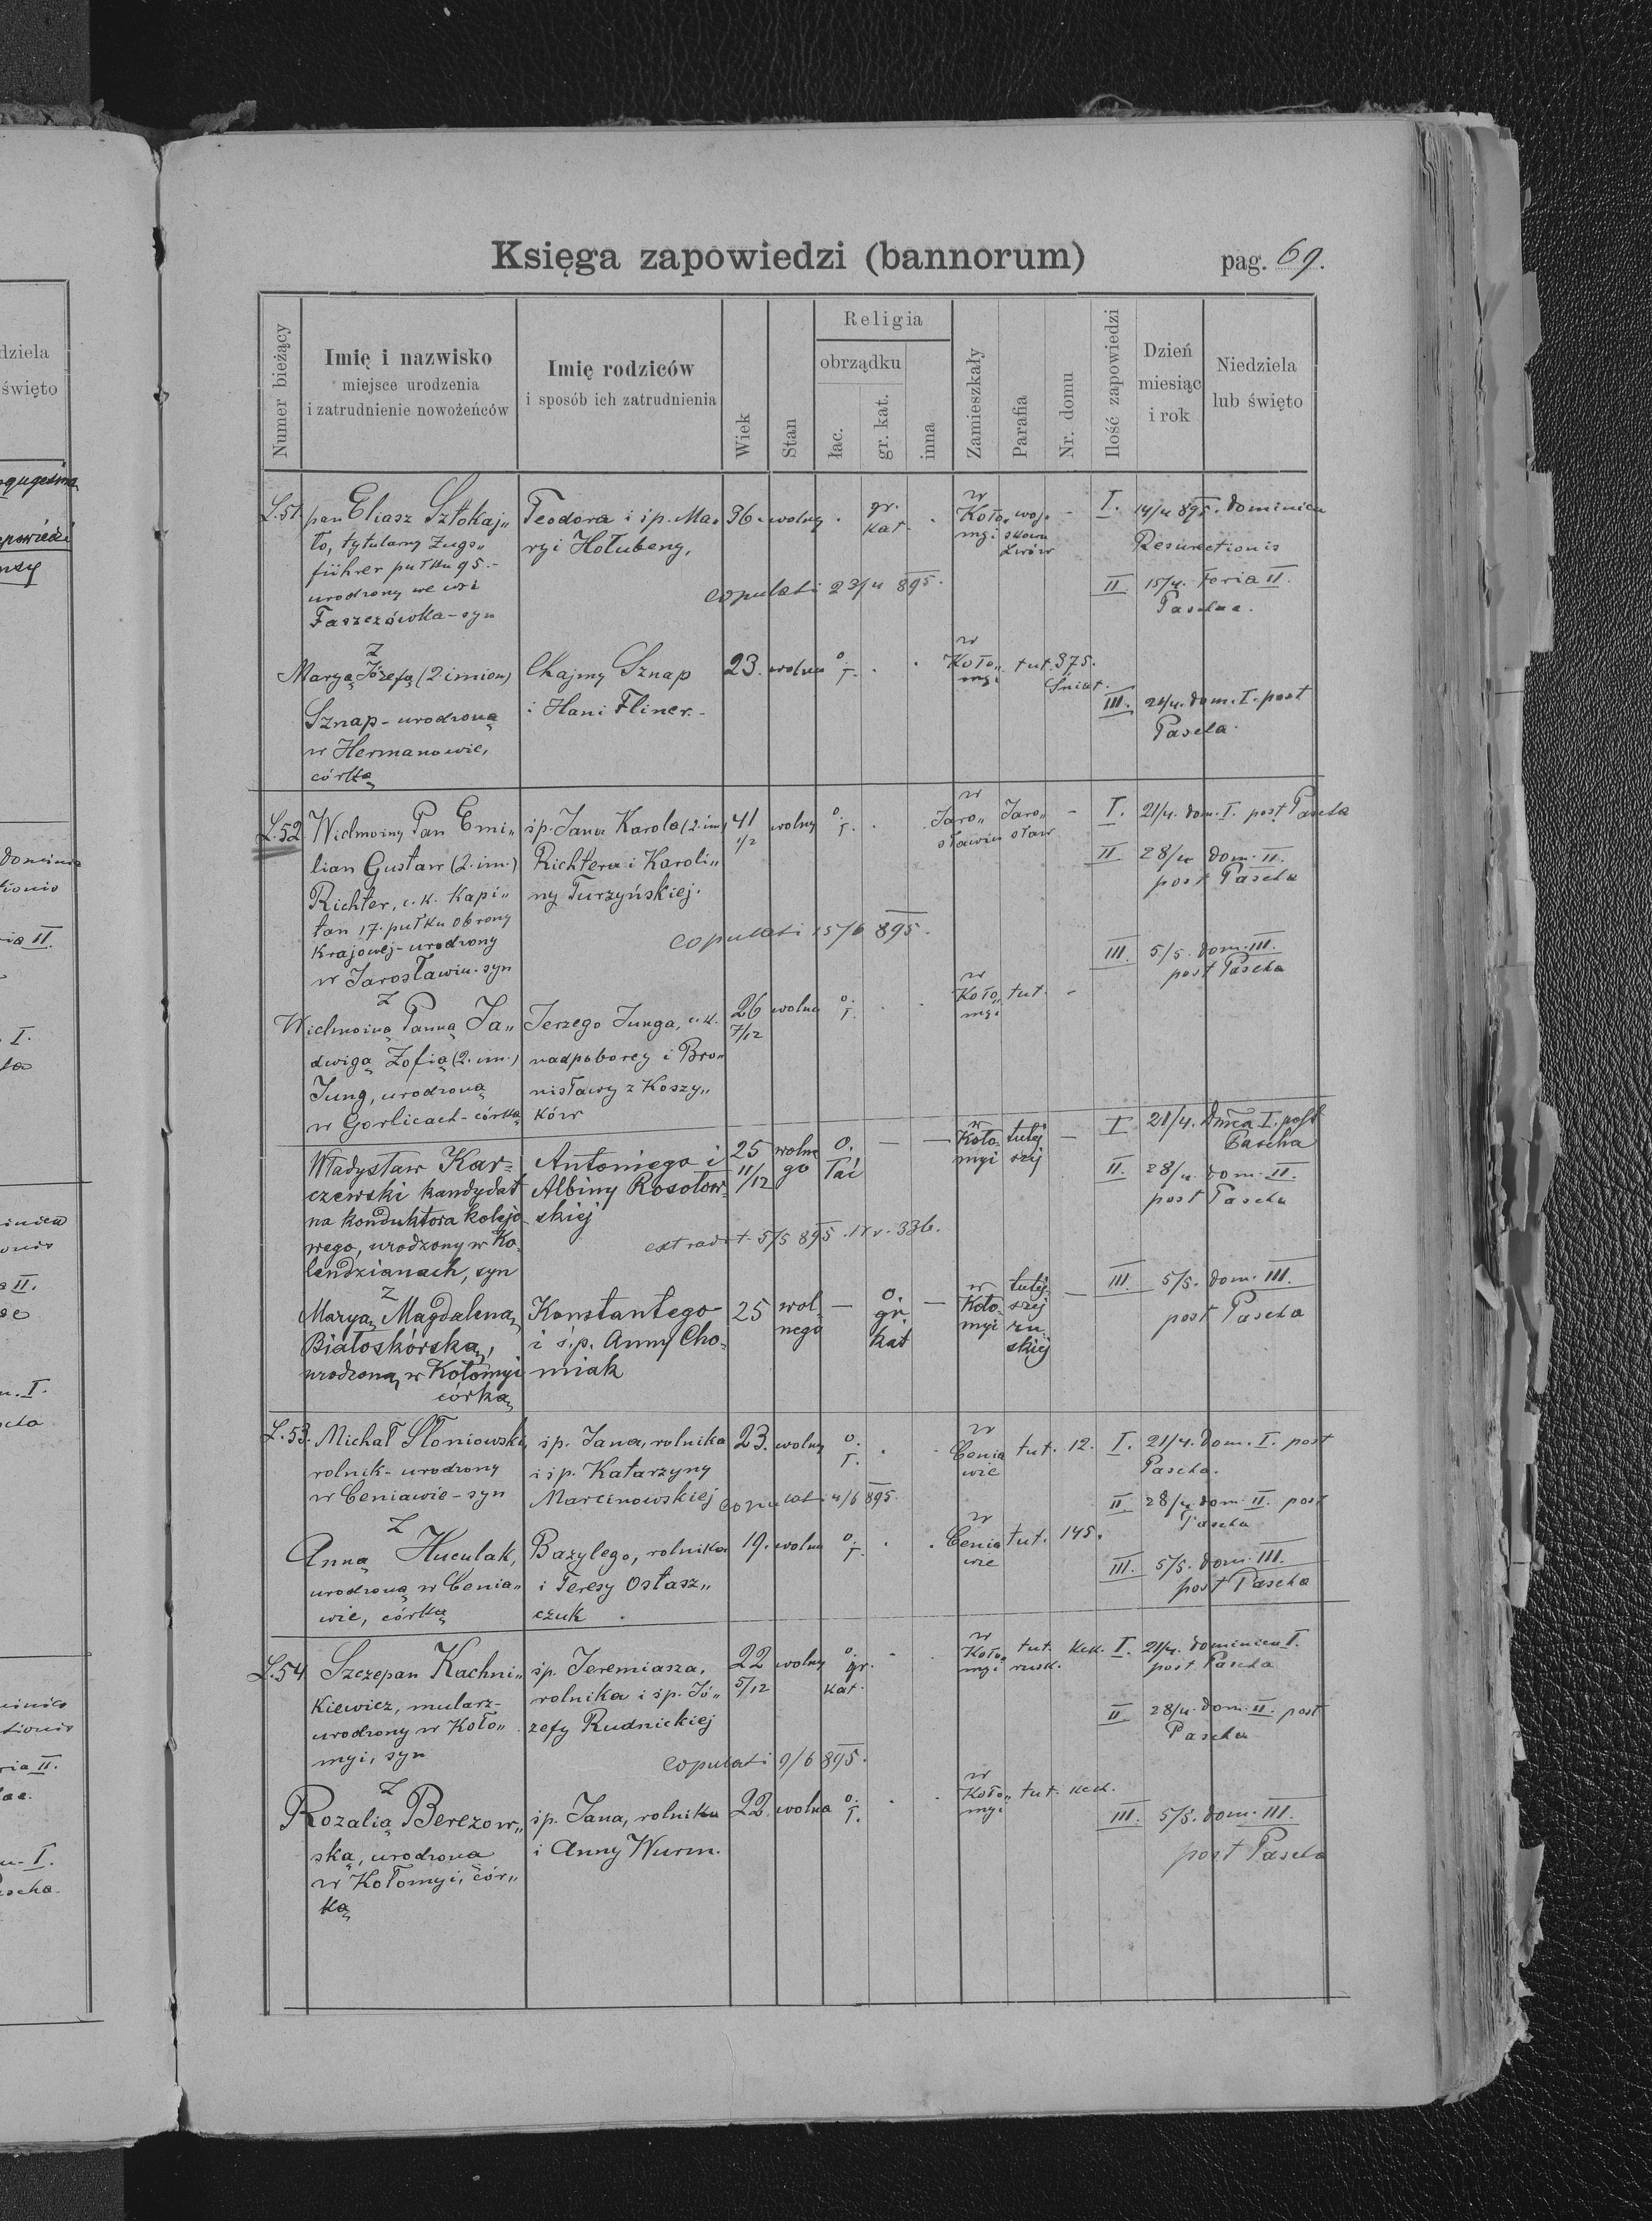 Księga zapowiedzi (bannorum)
pag. 69.
Numer bieżący
Imię i nazwisko
miejsce urodzenia
i zatrudnienie nowożeńców
Imię rodziców
i sposób ich zatrudnienia
Wiek
Stan
Religia
obrządku
łac.
gr. kat.
inna
Zamieszkały
Parafia
Nr. domu
Ilość zapowiedzi
Dzień
miesiąc
i rok
Niedziela
lub święto
L.51. pan Eliasz Sztokaj„
ło, tytularny Zugs„
führer pułku 95.-
urodzony we wsi
Faszczówka - syn
Teodora i śp. Ma„
ryi Hołubeny,
36. wolny . gr. kat. .
w Koło„ myi
woj„ skowa Lwów -
I. 14/4 895. Dominica
Resurectionis
II 15/4. Feria II.
Paschae.
copulati 23/4 895.
z
Maryą Józefą (2 imion)
Sznap - urodzoną
w Hermanowie,
córką
Chajmy Sznap
i Hani Fliner.-
23. wolna o ł. . .
w Koło„ myi
tut. 375.
Śniat.
III. 21/4. dom. I. post
Pascha.
L.52 Wielmożny Pan Emi„
lian Gustaw (2. im.)
Richter, c.k. Kapi„
tan 17. pułku obrony
Krajowej - urodzony
w Jarosławiu - syn
śp. Jana Karola (2. im)
Richtera i Karoli„
ny Turzyńskiej.
41 1/2 wolny o ł. . .
w Jaro„ sławiu
Jaro„ sław -
I. 21/4. dom. I. post Pascha
II 28/4 dom. II.
post Pascha
copulati 15/6 895.
III. 5/5. dom. III.
post Pascha
z
Wielmożną Panną Ja„
dwigą Zofią (2. im.)
Jung, urodzoną
w Gorlicach - córką
Jerzego Junga, c.k.
nadpoborcy i Bro„
nisławy z Koszy„
ków
26 7/12 wolna o. ł. . .
w Koło„ myi
tut. -
Władysław Kar=
czewski kandydat
na konduktora kolejo
wego, urodzony w Ko=
lendzianach, syn
Antoniego i
Albiny Rosołow=
skiej
25 11/12 wolne go
o. łać — —
w Koło- myi
tutej szej —
I 21/4. Dmca I. post
Pascha
II. 28/4. dom. II.
post Pascha
extradit. 5/5 895. Nr. 336.
z
Maryą Magdaleną
Białoskórską,
urodzoną w Kołomyi
córką
Konstantego
i ś.p. Anny Cho=
miak
25 wol nego — o. gr. kat —
w Koło- myi
tutej- szej ru- skiej —
III. 5/5. dom. III.
post Pascha
L.53. Michał Słoniowski,
rolnik - urodzony
w Ceniawie - syn
śp. Jana, rolnika
i śp. Katarzyny
Marcinowskiej
23. wolny o. ł. . .
w Cenia wie
tut. 12.
I. 21/4. dom. I. post
Pascha.
copulati 4/6 895.
II 28/4 dom. II. post
Pascha
z
Anną Huculak,
urodzoną w Cenia„
wie, córką
Bazylego, rolnika
i Teresy Ostasz„
czuk
19. wolna o. ł. . .
w Cenia wie
tut. 145.
III. 5/5. dom. III.
post Pascha
L.54 Szczepan Kachni„
kiewicz, mularz -
urodzony w Koło„
myi, syn
śp. Jeremiasza,
rolnika i śp. Jó„
zefy Rudnickiej
22 5/12 wolny o. gr. kat. . .
w Koło„ myi
tut. rusk.
I. 21/4. dominica I.
post Pascha
II 28/4. dom. II. post
Pascha
copulati 9/6 895.
z
Rozalią Berezow„
ską, urodzona
w Kołomyi, cór„
ką
śp. Jana, rolnika
i Anny Wurm.
22. wolna o. ł. . .
w Koło„ myi
tut.
III. 5/5. dom. III.
post Pascha